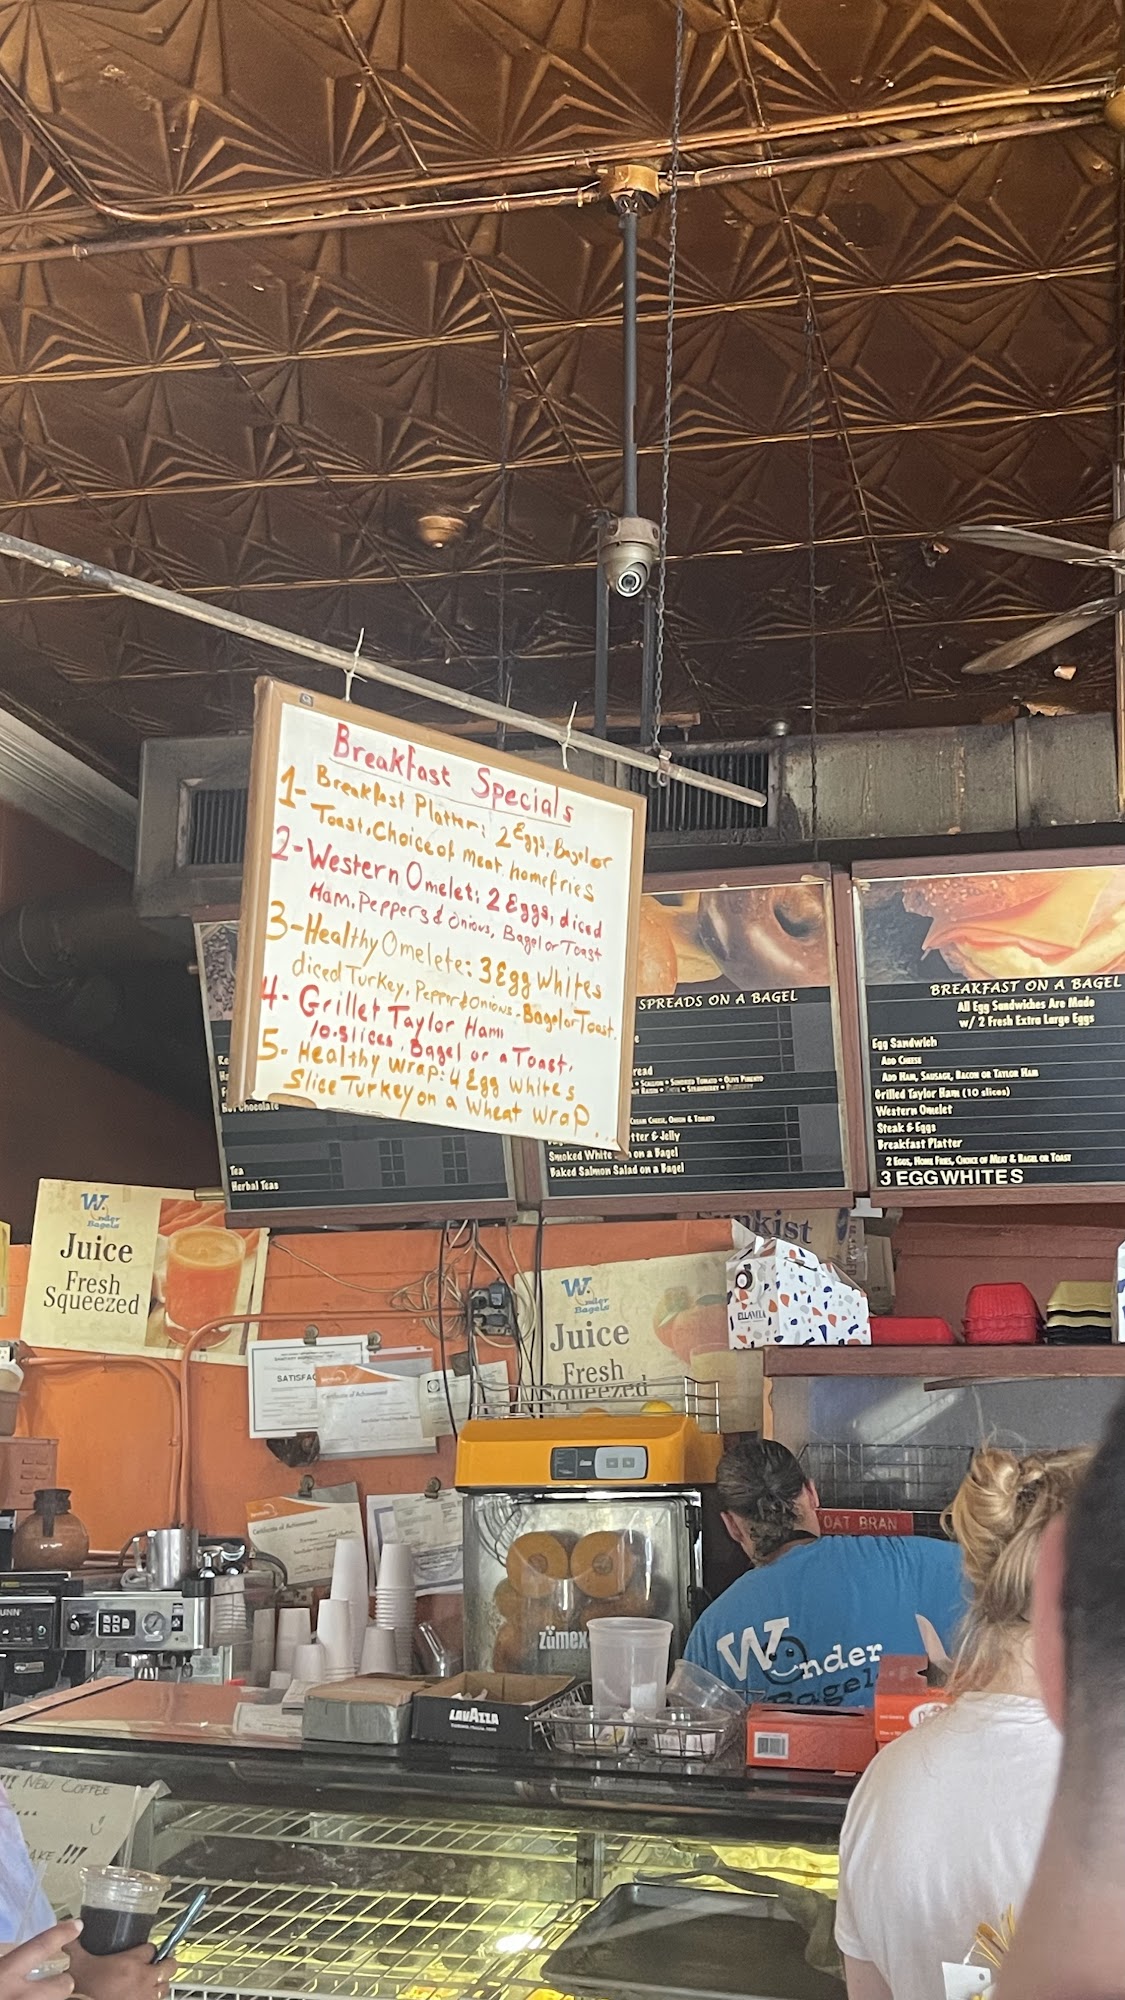 Breakfast Specials
1- Breakfast Platter: 2 Eggs, Bagel or
Toast, Choice of meat homefries
2- Western Omelet: 2 Eggs, diced
Ham, Peppers & Onions, Bagel or Toast
3- Healthy Omelete: 3 Egg whites
diced Turkey, Pepper & Onions - Bagel or Toast.
4- Grillet Taylor Ham
10.slices, Bagel or a Toast.
5- Healthy wrap: 4 Egg whites
Slice Turkey on a wheat wrap
Hot Chocolate
Tea
Herbal Teas
SPREADS ON A BAGEL
Cream Cheese, Onion & Tomato
Jelly
Smoked White
on a Bagel
Baked Salmon Salad on a Bagel
BREAKFAST ON A BAGEL
All Egg Sandwiches Are Made
w/ 2 Fresh Extra Large Eggs
Egg Sandwich
Add Cheese
Add Ham, Sausage, Bacon or Taylor Ham
Grilled Taylor Ham (10 slices)
Western Omelet
Steak & Eggs
Breakfast Platter
2 Eggs, Home Fries, Choice of Meat & Bagel or Toast
3 EGGWHITES
Wonder
Bagels
Juice
Fresh
Squeezed
Sunkist
Wonder
Bagels
Juice
Fresh
Squeezed
ELLAMIA
SATISFAC
Certificate of Achievement
Certificate of Achievement
OAT BRAN
zümex
Wonder
Bagels
LAVAZZA
!!! NEW COFFEE
AKE !!!